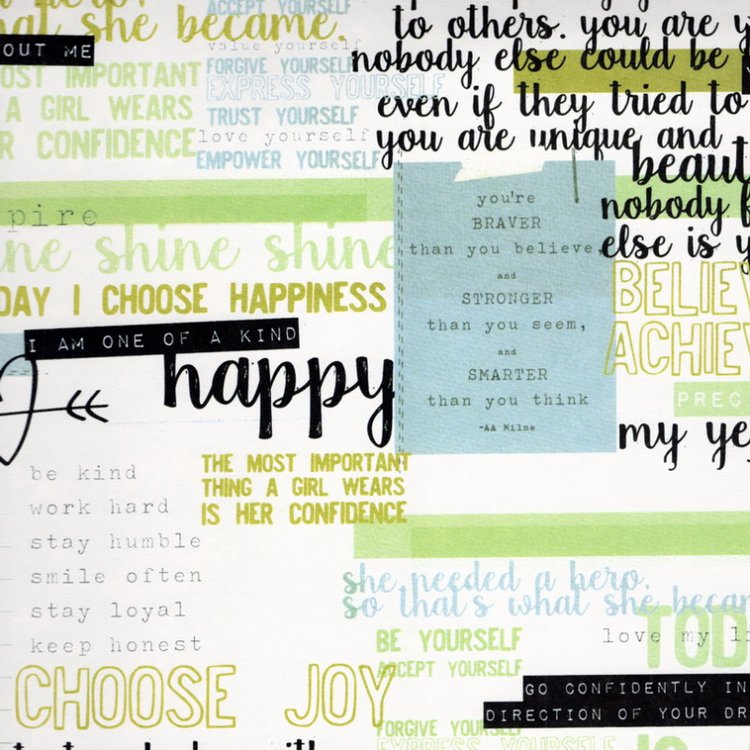 she became.
OUT ME
OST IMPORTANT
A GIRL WEARS
R CONFIDENCE
ACCEPT YOURSELF
value yourself
FORGIVE YOURSELF
EXPRESS YOURSELF
TRUST YOURSELF
love yourself
EMPOWER YOURSELF
to others. you are y
nobody else could be
even if they tried to
you are unique and
beaut
nobody
else is y
pire
ne shine shine
DAY I CHOOSE HAPPINESS
I AM ONE OF A KIND
happy
you're
BRAVER
than you believe,
and
STRONGER
than you seem,
and
SMARTER
than you think
-AA Milne
BELIEV
ACHIEV
PREC
my ye
be kind
work hard
stay humble
smile often
stay loyal
keep honest
THE MOST IMPORTANT
THING A GIRL WEARS
IS HER CONFIDENCE
CHOOSE JOY
she needed a hero,
so that's what she becam
BE YOURSELF
ACCEPT YOURSELF
FORGIVE YOURSELF
EXPRESS YOURSELF
love my li
TOD
GO CONFIDENTLY IN
DIRECTION OF YOUR DR